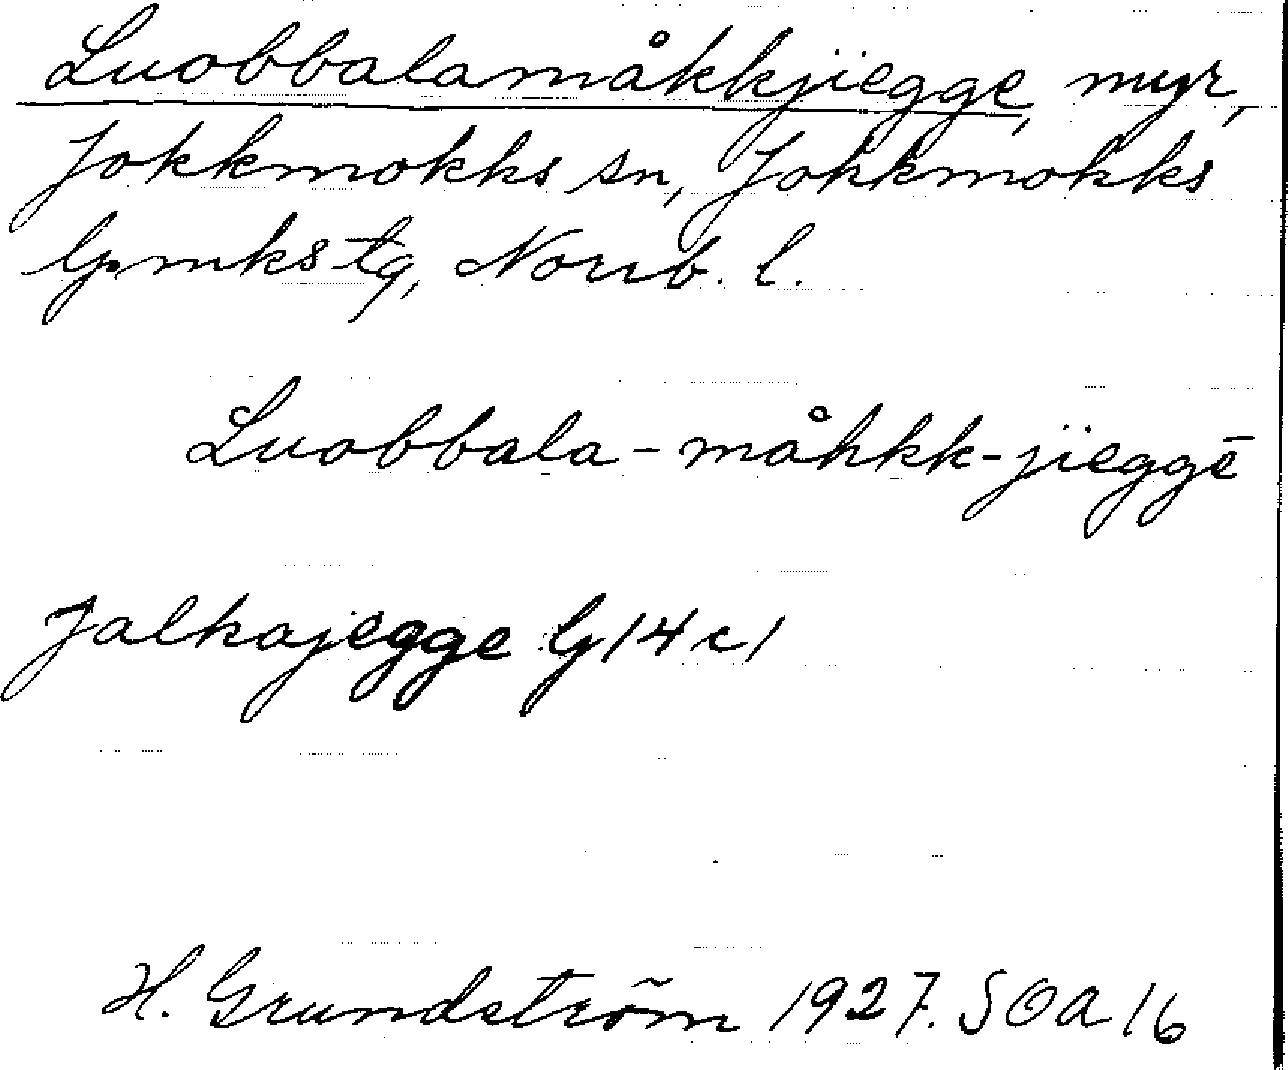 Luobbalamåkkjiegge, myr,
Jokkmokks sn, Jokkmokks
lpmks tg, Norrb. l.
Luobbala-måhkk-jieggē
Jalkajegge G/4c/
H. Grundström 1927. SOA 16